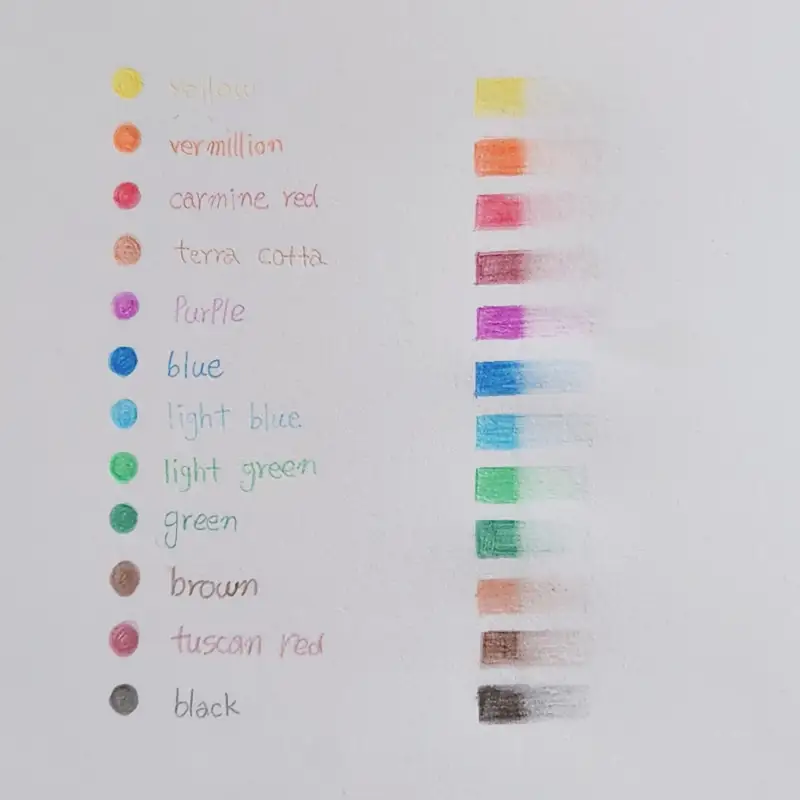 yellow
vermillion
carmine red
terra cotta
PurPle
blue
light blue
light green
green
brown
tuscan red
black